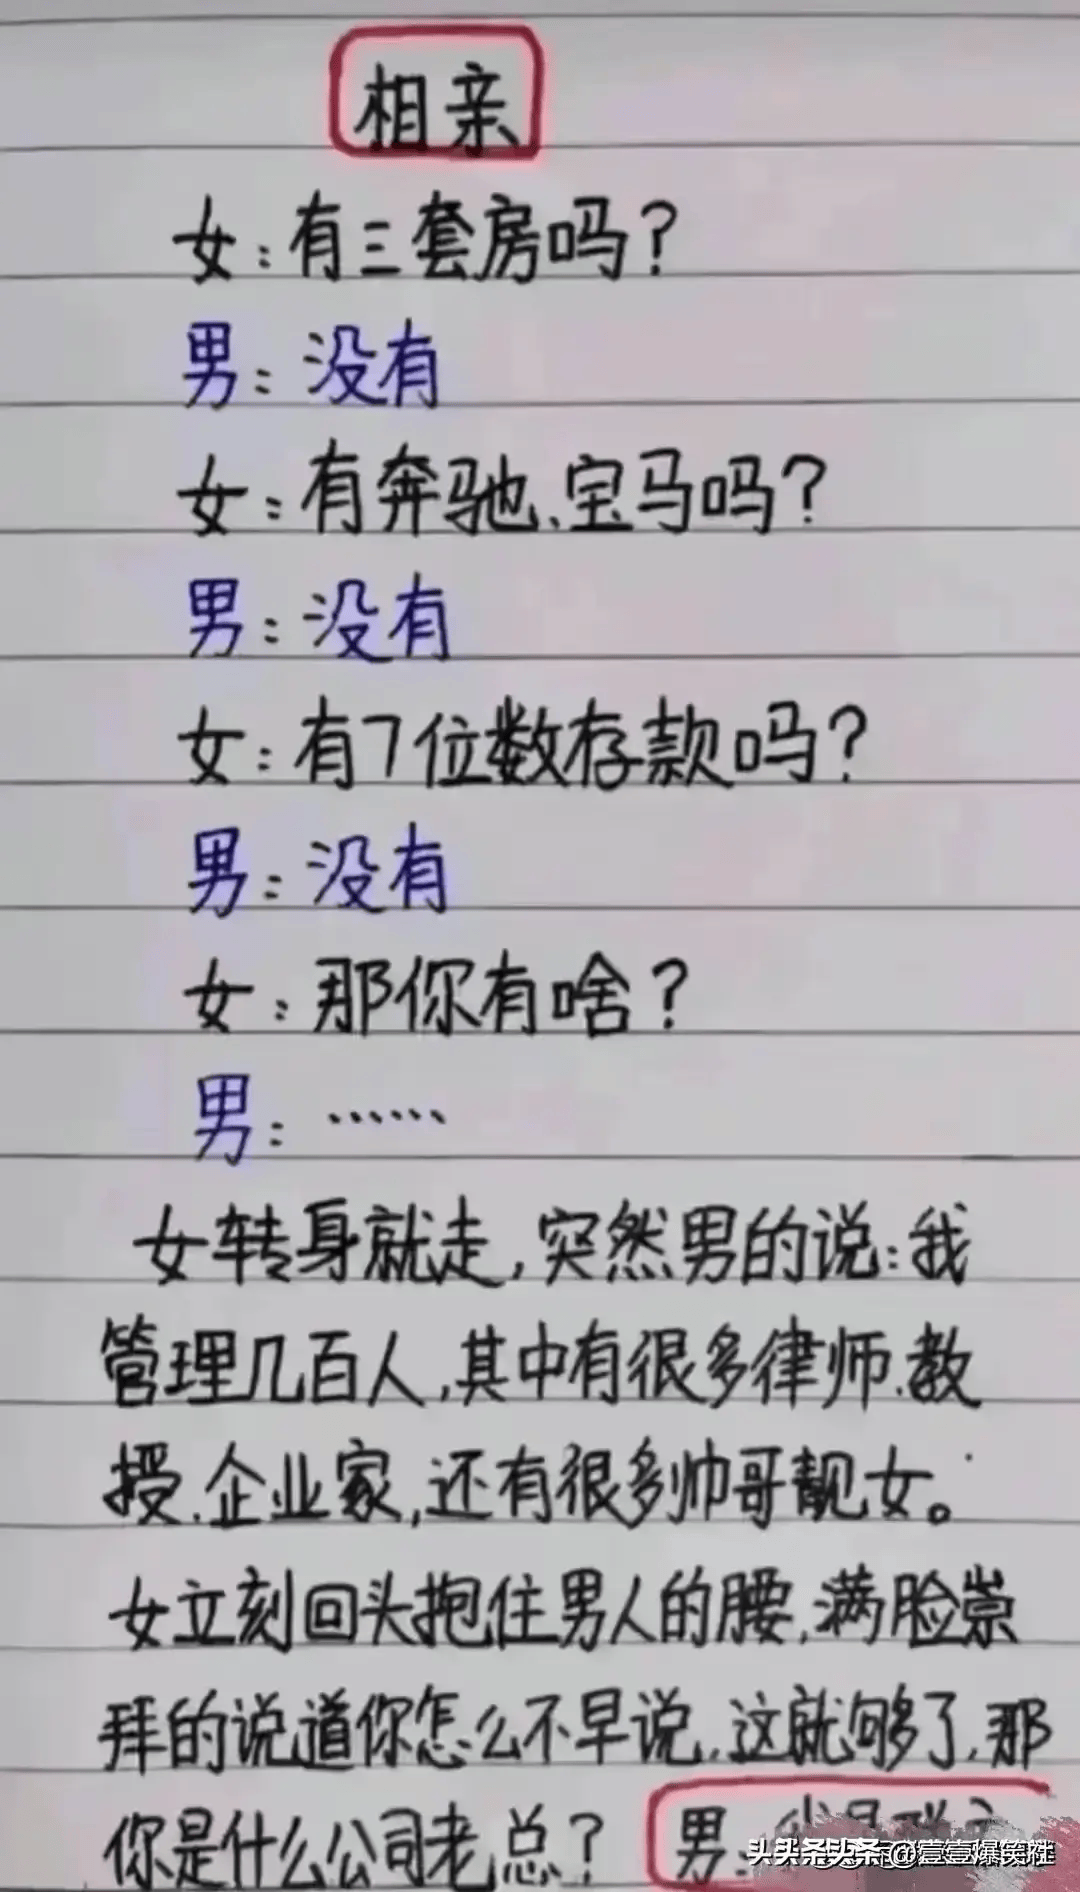 相亲
女：有三套房吗？
男：没有
女：有奔驰、宝马吗？
男：没有
女：有7位数存款吗？
男：没有
女：那你有啥？
男：……
女转身就走，突然男的说：我
管理几百人，其中有很多律师、教
授、企业家，还有很多帅哥靓女。
女立刻回头抱住男人的腰，满脸崇
拜的说道你怎么不早说，这就够了，那
你是什么公司老总？ 男：
头条 @壹壹爆笑班